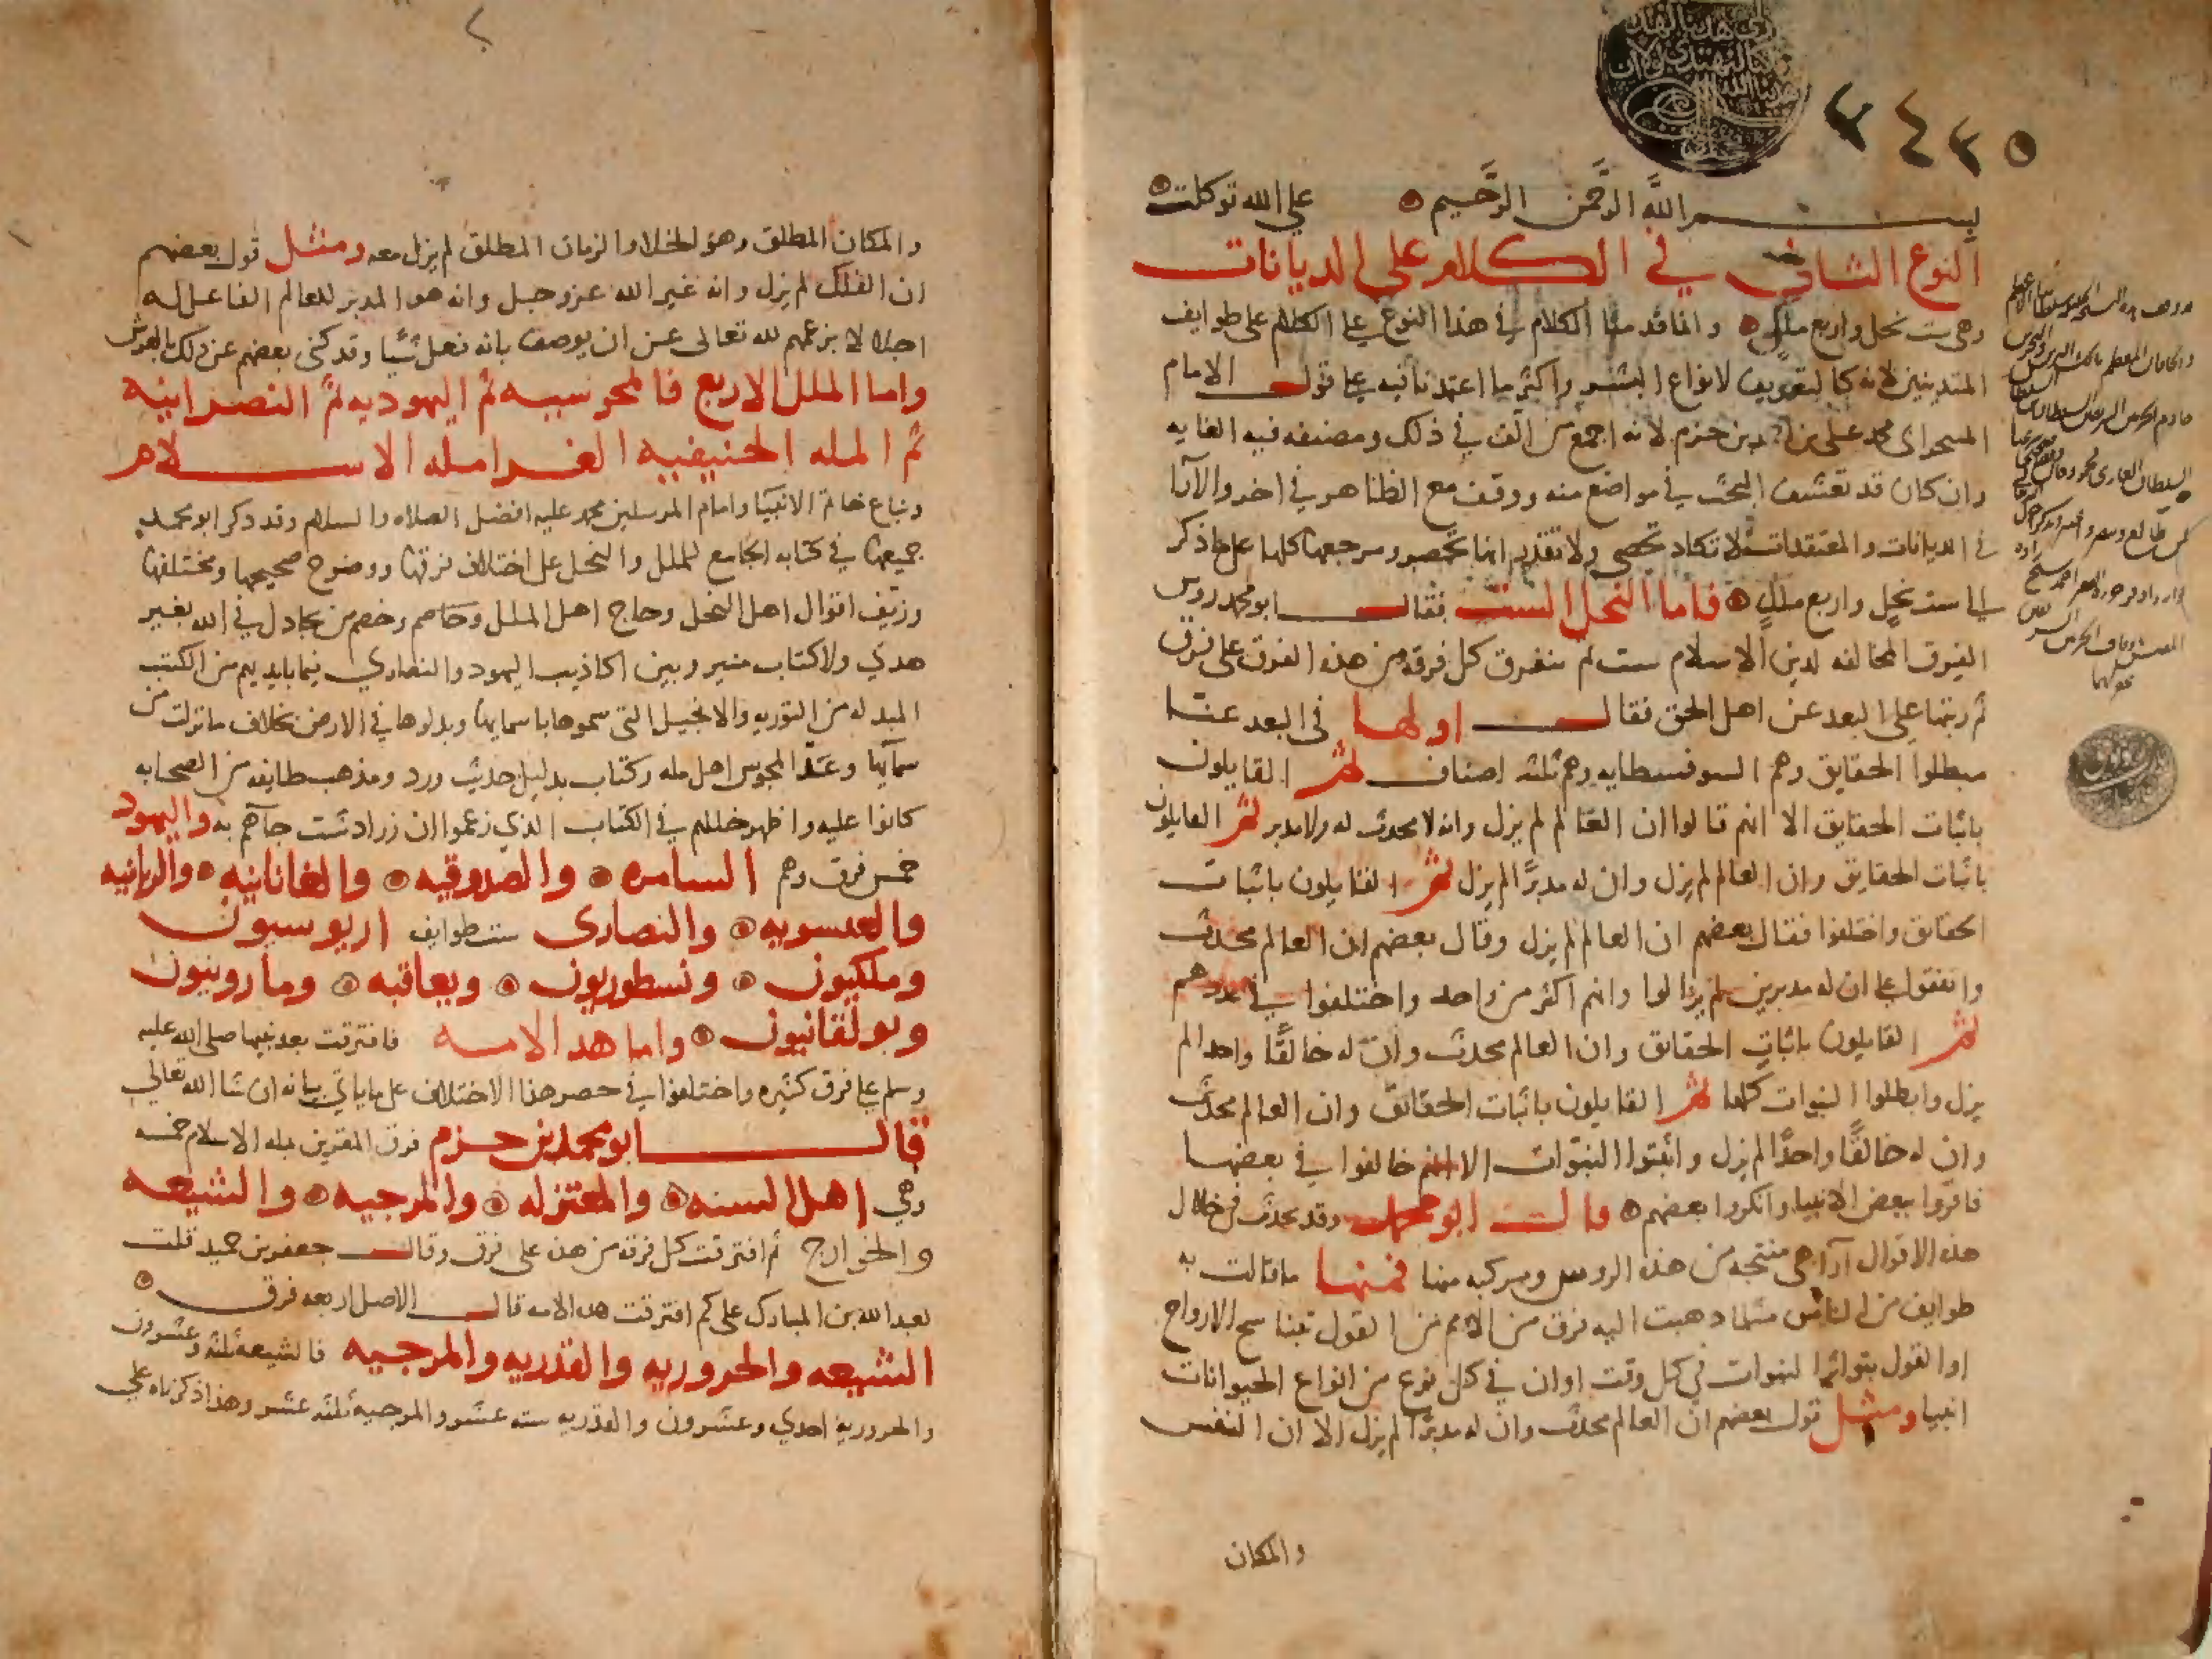 ٣٤٢٥
بسم الله الرَّحمن الرَّحيم على الله توكلت
النوع الثاني في الكلام على الديانات
وهي ست نحل واربع ملل وانما قدمنا الكلام في هذا النوع على الكلام على طوايف
المتدينين لانه كالتعريف لانواع البشر واكثر ما اعتمدنا فيه على قول الامام
ابى محمد على بن احمد بن حزم لانه اجمع من الّف في ذلك ومصنفه فيه الغايه
وان كان قد تعسّف البحث في مواضع منه ووقف مع الظاهر في اخر والآرا
في الديانات والمعتقدات لا تكاد تحصى ولا تنحصر ومرجعها كلها على ما ذكر
الى ست نحل واربع ملل فاما النحل الست فقال ابو محمد روس
الفرق المخالفه لدين الاسلام ست ثم تتفرق كل فرقه من هذه الفرق على فرق
ثم رتبها على البعد عن اهل الحق فقال اولها في البعد عنا
مبطلوا الحقايق وهم السوفسطايه وهم ثلثه اصناف ثم القايلون
باثبات الحقايق الا انهم قالوا ان العالم لم يزل وانه لا محدث له ولا مدبر ثم القايلون
باثبات الحقايق وان العالم لم يزل وان له مدبرًا لم يزل ثم القايلون باثبات
الحقائق واختلفوا فقال بعضهم ان العالم لم يزل وقال بعضهم ان العالم محدث
واتفقوا على ان له مدبرين لم يزالوا وانهم اكثر من واحد واختلفوا في عددهم
ثم القايلون باثبات الحقائق وان العالم محدث وان له خالقًا واحدا لم
يزل وابطلوا النبوات كلها ثم القايلون باثبات الحقائق وان العالم محدث
وان له خالقًا واحدًا لم يزل واثبتوا النبوّات الا انهم خالفوا في بعضها
فاقرّوا ببعض الانبيا وانكروا بعضهم قال ابو محمد وقد تحدث في خلال
هذه الاقوال آرآ هي منتجه من هذه الروس ومركبه منها فمنها ما قالت به
طوايف من الناس مثل ما ذهبت اليه فرق من الامم من القول بتناسخ الارواح
او القول بتواتر النبوات في كل وقت او ان في كل نوع من انواع الحيوانات
انبيا ومثل قول بعضهم ان العالم محدث وان له مدبرًا لم يزل الا ان النفس
والمكان
والمكان المطلق وهو الخلا والزمان المطلق لم يزل معه ومثل قول بعضهم
ان الفلك لم يزل وانه غير الله عز وجل وانه هو المدبر للعالم الفاعل له
اجلالا بزعمهم لله تعالى عن ان يوصف بانه فعل شيا وقد كنى بعضهم عن ذلك بالعرش
واما الملل الاربع فالمجوسيه ثم اليهوديه ثم النصرانيه
ثم المله الحنيفيه الغرا مله الاسلام
وتباع خاتم الانبيا وامام المرسلين محمد عليه افضل الصلاه والسلام وقد ذكر ابو محمد
جميعها في كتابه الجامع للملل والنحل على اختلاف فرقها ووضوح صحيحها ومختلفها
وزيّف اقوال اهل النحل وحاج اهل الملل وخاصم وخصم من يجادل في الله بغير
هدي ولا كتاب منير وبين اكاذيب اليهود والنصارى فيما بايديهم من الكتب
المبدله من التوريه والانجيل التى سموها باسمايها وبدلوها في الارض بخلاف ما نزلت من
سمآيها وعَدّ المجوس اهل مله وكتاب بدليل حديث ورد ومذهب طايفه من الصحابه
كانوا عليه واظهر خللهم في الكتاب الذي زعموا ان زرادشت جآهم به واليهود
خمس فرق وهم السامره والصدوقيه والعانانيه والربانيه
والعيسويه والنصارى ست طوايف اريوسيون
وملكيون ونسطوريون ويعاقبه ومارونيون
وبولقانيون واما هذه الامه فافترقت بعد نبيها صلى الله عليه
وسلم على فرق كثيره واختلفوا في حصر هذا الاختلاف على ما ياتي بيانه ان شا الله تعالى
قال ابو محمد بن حزم فرق المقرين بمله الاسلام خمسه
وهي اهل السنه والمعتزله والمرجيه والشيعه
والخوارج ثم افترقت كل فرقه من هذه على فرق وقال جعفر بن حميد قلت
لعبد الله بن المبارك على كم افترقت هذه الامه قال الاصل اربعه فرق
الشيعه والحروريه والقدريه والمرجيه فالشيعه ثلثه وعشرون
والحروريه احدي وعشرون والقدريه سته عشر والمرجيه ثلثه عشر وهذا ذكرناه على